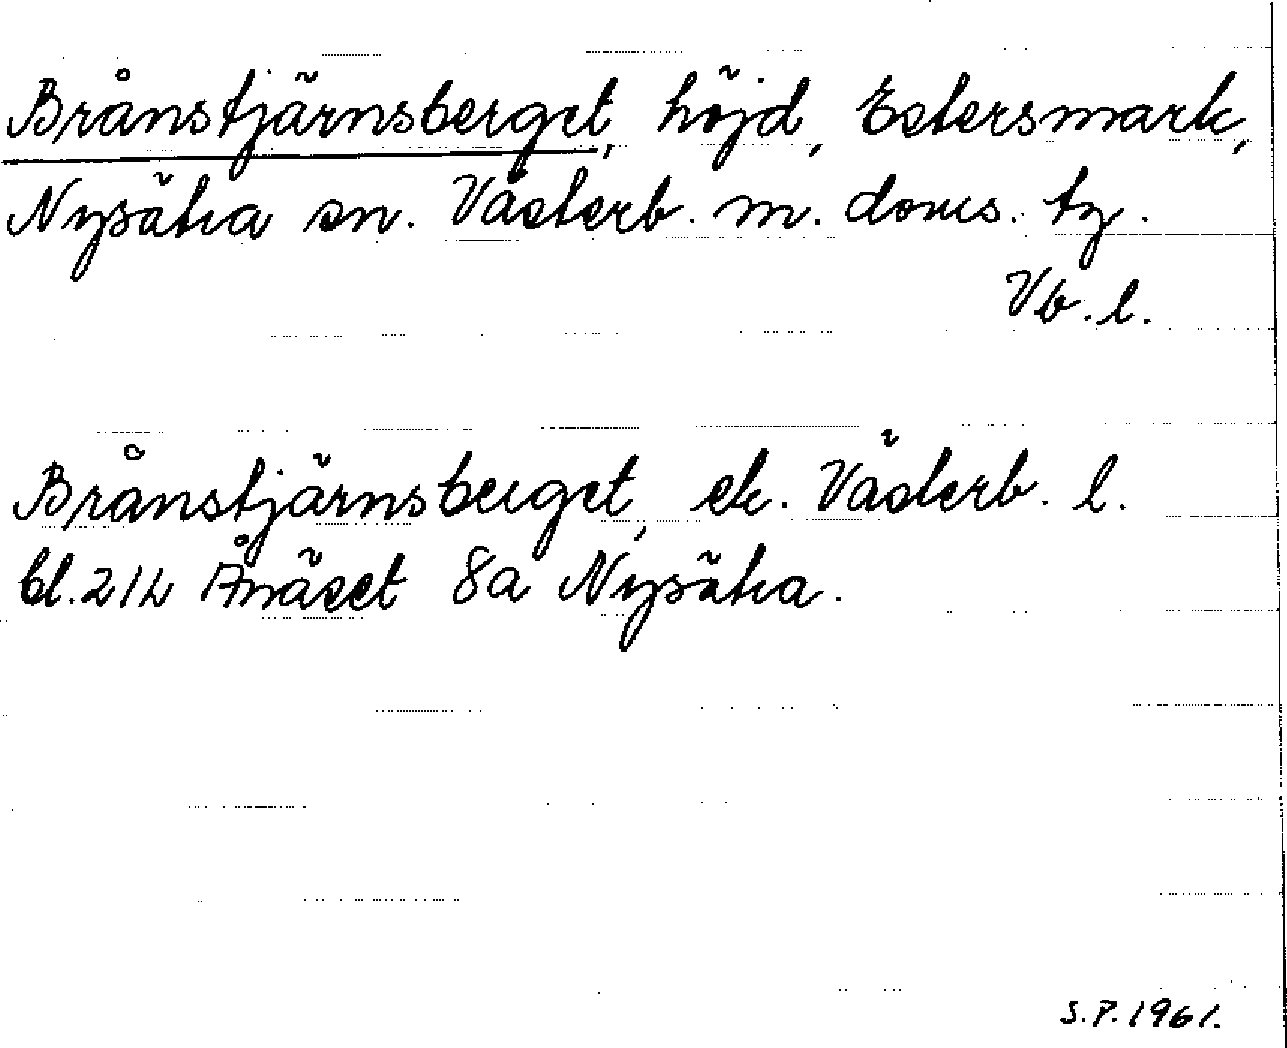 Brånstjärnsberget, höjd, Estersmark,
Nysätra sn. Västerb. m. doms. tg.
Vb. l.
Brånstjärnsberget, ek. Västerb. l.
bl. 21L Ånäset 8a Nysätra.
S.P. 1961.